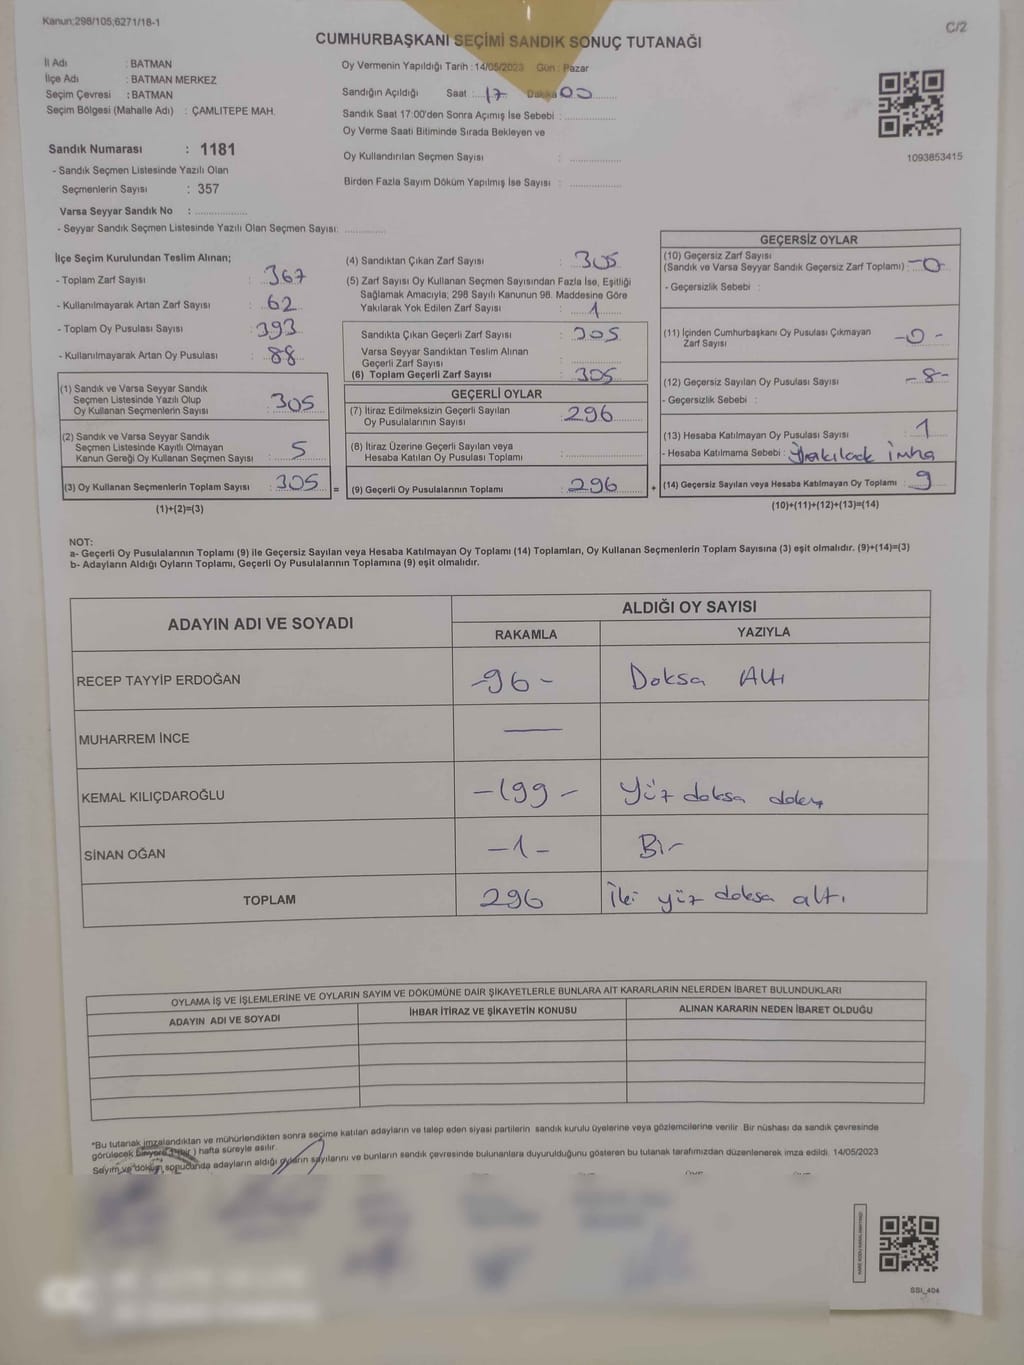 Kanun:298/105;6271/18-1
C/2
CUMHURBAŞKANI SEÇİMİ SANDIK SONUÇ TUTANAĞI
İl Adı : BATMAN
İlçe Adı : BATMAN MERKEZ
Seçim Çevresi : BATMAN
Seçim Bölgesi (Mahalle Adı) : ÇAMLITEPE MAH.
Sandık Numarası : 1181
- Sandık Seçmen Listesinde Yazılı Olan
Seçmenlerin Sayısı : 357
Varsa Seyyar Sandık No : ..................
- Seyyar Sandık Seçmen Listesinde Yazılı Olan Seçmen Sayısı: ..............
Oy Vermenin Yapıldığı Tarih : 14/05/2023 Gün : Pazar
Sandığın Açıldığı Saat : 17 Dakika 00
Sandık Saat 17:00'den Sonra Açımış İse Sebebi : ..................
Oy Verme Saati Bitiminde Sırada Bekleyen ve
Oy Kullandırılan Seçmen Sayısı : ..................
Birden Fazla Sayım Döküm Yapılmış İse Sayısı : ..................
1093853415
İlçe Seçim Kurulundan Teslim Alınan;
- Toplam Zarf Sayısı : 367
- Kullanılmayarak Artan Zarf Sayısı : 62
- Toplam Oy Pusulası Sayısı : 393
- Kullanılmayarak Artan Oy Pusulası : 88
(1) Sandık ve Varsa Seyyar Sandık
Seçmen Listesinde Yazılı Olup
Oy Kullanan Seçmenlerin Sayısı : 305
(2) Sandık ve Varsa Seyyar Sandık
Seçmen Listesinde Kayıtlı Olmayan
Kanun Gereği Oy Kullanan Seçmen Sayısı : 5
(3) Oy Kullanan Seçmenlerin Toplam Sayısı : 305 =
(1)+(2)=(3)
(4) Sandıktan Çıkan Zarf Sayısı : 305
(5) Zarf Sayısı Oy Kullanan Seçmen Sayısından Fazla İse, Eşitliği
Sağlamak Amacıyla; 298 Sayılı Kanunun 98. Maddesine Göre
Yakılarak Yok Edilen Zarf Sayısı : 1
Sandıkta Çıkan Geçerli Zarf Sayısı : 305
Varsa Seyyar Sandıktan Teslim Alınan
Geçerli Zarf Sayısı : ..................
(6) Toplam Geçerli Zarf Sayısı : 305
GEÇERLİ OYLAR
(7) İtiraz Edilmeksizin Geçerli Sayılan
Oy Pusulalarının Sayısı : 296
(8) İtiraz Üzerine Geçerli Sayılan veya
Hesaba Katılan Oy Pusulası Toplamı : ..................
(9) Geçerli Oy Pusulalarının Toplamı : 296 +
GEÇERSİZ OYLAR
(10) Geçersiz Zarf Sayısı
(Sandık ve Varsa Seyyar Sandık Geçersiz Zarf Toplamı) : -0-
- Geçersizlik Sebebi :
(11) İçinden Cumhurbaşkanı Oy Pusulası Çıkmayan
Zarf Sayısı : -0-
(12) Geçersiz Sayılan Oy Pusulası Sayısı : -8-
- Geçersizlik Sebebi :
(13) Hesaba Katılmayan Oy Pusulası Sayısı : 1
- Hesaba Katılmama Sebebi : Yakılack imha
(14) Geçersiz Sayılan veya Hesaba Katılmayan Oy Toplamı : 9
(10)+(11)+(12)+(13)=(14)
NOT:
a- Geçerli Oy Pusulalarının Toplamı (9) ile Geçersiz Sayılan veya Hesaba Katılmayan Oy Toplamı (14) Toplamları, Oy Kullanan Seçmenlerin Toplam Sayısına (3) eşit olmalıdır. (9)+(14)=(3)
b- Adayların Aldığı Oyların Toplamı, Geçerli Oy Pusulalarının Toplamına (9) eşit olmalıdır.
ADAYIN ADI VE SOYADI
ALDIĞI OY SAYISI
RAKAMLA YAZIYLA
RECEP TAYYİP ERDOĞAN -96- Doksa Altı
MUHARREM İNCE —
KEMAL KILIÇDAROĞLU -199- Yüz doksa dokuz
SİNAN OĞAN -1- Bir
TOPLAM 296 İki yüz doksa altı
OYLAMA İŞ VE İŞLEMLERİNE VE OYLARIN SAYIM VE DÖKÜMÜNE DAİR ŞİKAYETLERLE BUNLARA AİT KARARLARIN NELERDEN İBARET BULUNDUKLARI
ADAYIN ADI VE SOYADI İHBAR İTİRAZ VE ŞİKAYETİN KONUSU ALINAN KARARIN NEDEN İBARET OLDUĞU
*Bu tutanak imzalandıktan ve mühürlendikten sonra seçime katılan adayların ve talep eden siyasi partilerin sandık kurulu üyelerine veya gözlemcilerine verilir. Bir nüshası da sandık çevresinde
görülecek bir yere 1 (bir) hafta süreyle asılır.
Sayım ve döküm sonucunda adayların aldığı oyların sayılarını ve bunların sandık çevresinde bulunanlara duyurulduğunu gösteren bu tutanak tarafımızdan düzenlenerek imza edildi. 14/05/2023
SSI_404